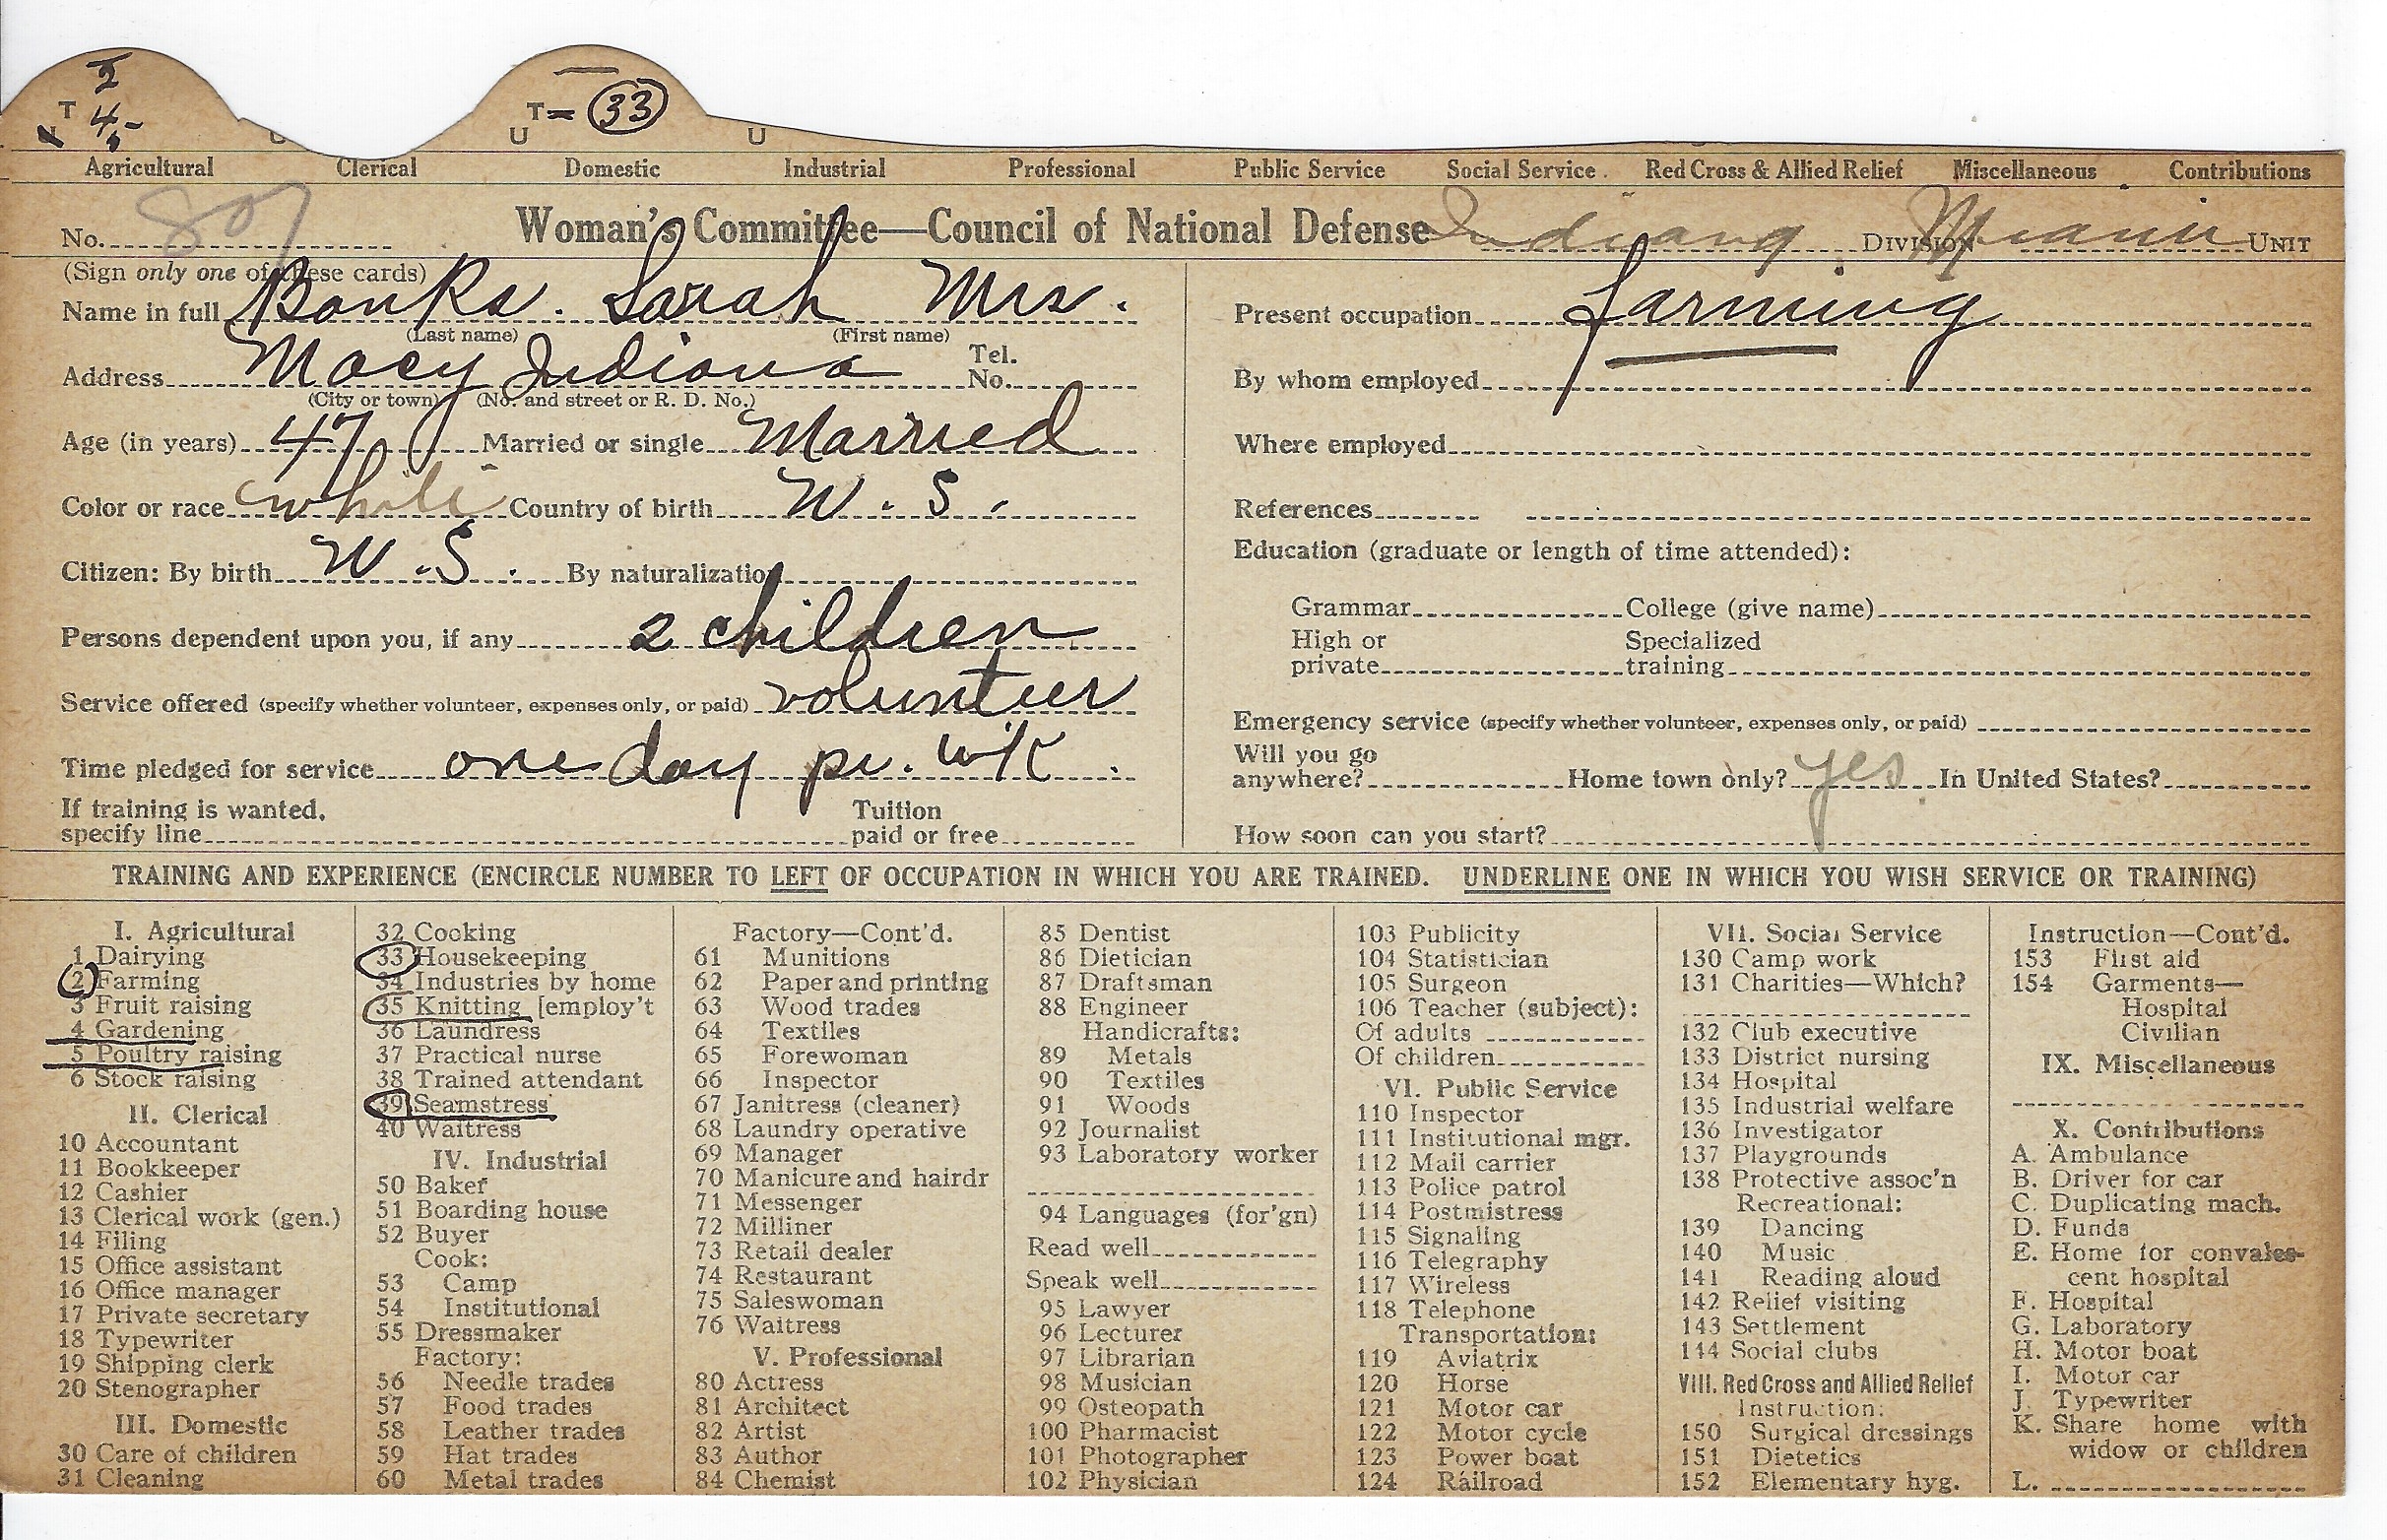 2
T 4,-
U
T= (33)
U U
Agricultural Clerical Domestic Industrial Professional Public Service Social Service Red Cross & Allied Relief Miscellaneous Contributions
No. 807 Woman's Committee—Council of National Defense Indiana Division Miami Unit
(Sign only one of these cards)
Name in full Banks. Sarah Mrs.
(Last name) (First name)
Address Macy Indiana Tel. No.
(City or town) (No. and street or R. D. No.)
Age (in years) 47 Married or single Married
Color or race white Country of birth U. S.
Citizen: By birth U. S. By naturalization
Persons dependent upon you, if any 2 children
Service offered (specify whether volunteer, expenses only, or paid) volunteer
Time pledged for service one day pr. wk.
If training is wanted, specify line Tuition paid or free
Present occupation farming
By whom employed
Where employed
References
Education (graduate or length of time attended):
Grammar College (give name)
High or private Specialized training
Emergency service (specify whether volunteer, expenses only, or paid)
Will you go anywhere? Home town only? yes In United States?
How soon can you start?
TRAINING AND EXPERIENCE (ENCIRCLE NUMBER TO LEFT OF OCCUPATION IN WHICH YOU ARE TRAINED. UNDERLINE ONE IN WHICH YOU WISH SERVICE OR TRAINING)
I. Agricultural
1 Dairying
2 Farming
3 Fruit raising
4 Gardening
5 Poultry raising
6 Stock raising
II. Clerical
10 Accountant
11 Bookkeeper
12 Cashier
13 Clerical work (gen.)
14 Filing
15 Office assistant
16 Office manager
17 Private secretary
18 Typewriter
19 Shipping clerk
20 Stenographer
III. Domestic
30 Care of children
31 Cleaning
32 Cooking
33 Housekeeping
34 Industries by home
35 Knitting [employ't
36 Laundress
37 Practical nurse
38 Trained attendant
39 Seamstress
40 Waitress
IV. Industrial
50 Baker
51 Boarding house
52 Buyer
Cook:
53 Camp
54 Institutional
55 Dressmaker
Factory:
56 Needle trades
57 Food trades
58 Leather trades
59 Hat trades
60 Metal trades
Factory—Cont'd.
61 Munitions
62 Paper and printing
63 Wood trades
64 Textiles
65 Forewoman
66 Inspector
67 Janitress (cleaner)
68 Laundry operative
69 Manager
70 Manicure and hairdr
71 Messenger
72 Milliner
73 Retail dealer
74 Restaurant
75 Saleswoman
76 Waitress
V. Professional
80 Actress
81 Architect
82 Artist
83 Author
84 Chemist
85 Dentist
86 Dietician
87 Draftsman
88 Engineer
Handicrafts:
89 Metals
90 Textiles
91 Woods
92 Journalist
93 Laboratory worker
94 Languages (for'gn)
Read well
Speak well
95 Lawyer
96 Lecturer
97 Librarian
98 Musician
99 Osteopath
100 Pharmacist
101 Photographer
102 Physician
103 Publicity
104 Statistician
105 Surgeon
106 Teacher (subject):
Of adults
Of children
VI. Public Service
110 Inspector
111 Institutional mgr.
112 Mail carrier
113 Police patrol
114 Postmistress
115 Signaling
116 Telegraphy
117 Wireless
118 Telephone
Transportation:
119 Aviatrix
120 Horse
121 Motor car
122 Motor cycle
123 Power boat
124 Railroad
VII. Social Service
130 Camp work
131 Charities—Which?
132 Club executive
133 District nursing
134 Hospital
135 Industrial welfare
136 Investigator
137 Playgrounds
138 Protective assoc'n
Recreational:
139 Dancing
140 Music
141 Reading aloud
142 Relief visiting
143 Settlement
144 Social clubs
VIII. Red Cross and Allied Relief
Instruction:
150 Surgical dressings
151 Dietetics
152 Elementary hyg.
Instruction—Cont'd.
153 First aid
154 Garments—
Hospital
Civilian
IX. Miscellaneous
X. Contributions
A. Ambulance
B. Driver for car
C. Duplicating mach.
D. Funds
E. Home for convales-
cent hospital
F. Hospital
G. Laboratory
H. Motor boat
I. Motor car
J. Typewriter
K. Share home with
widow or children
L.